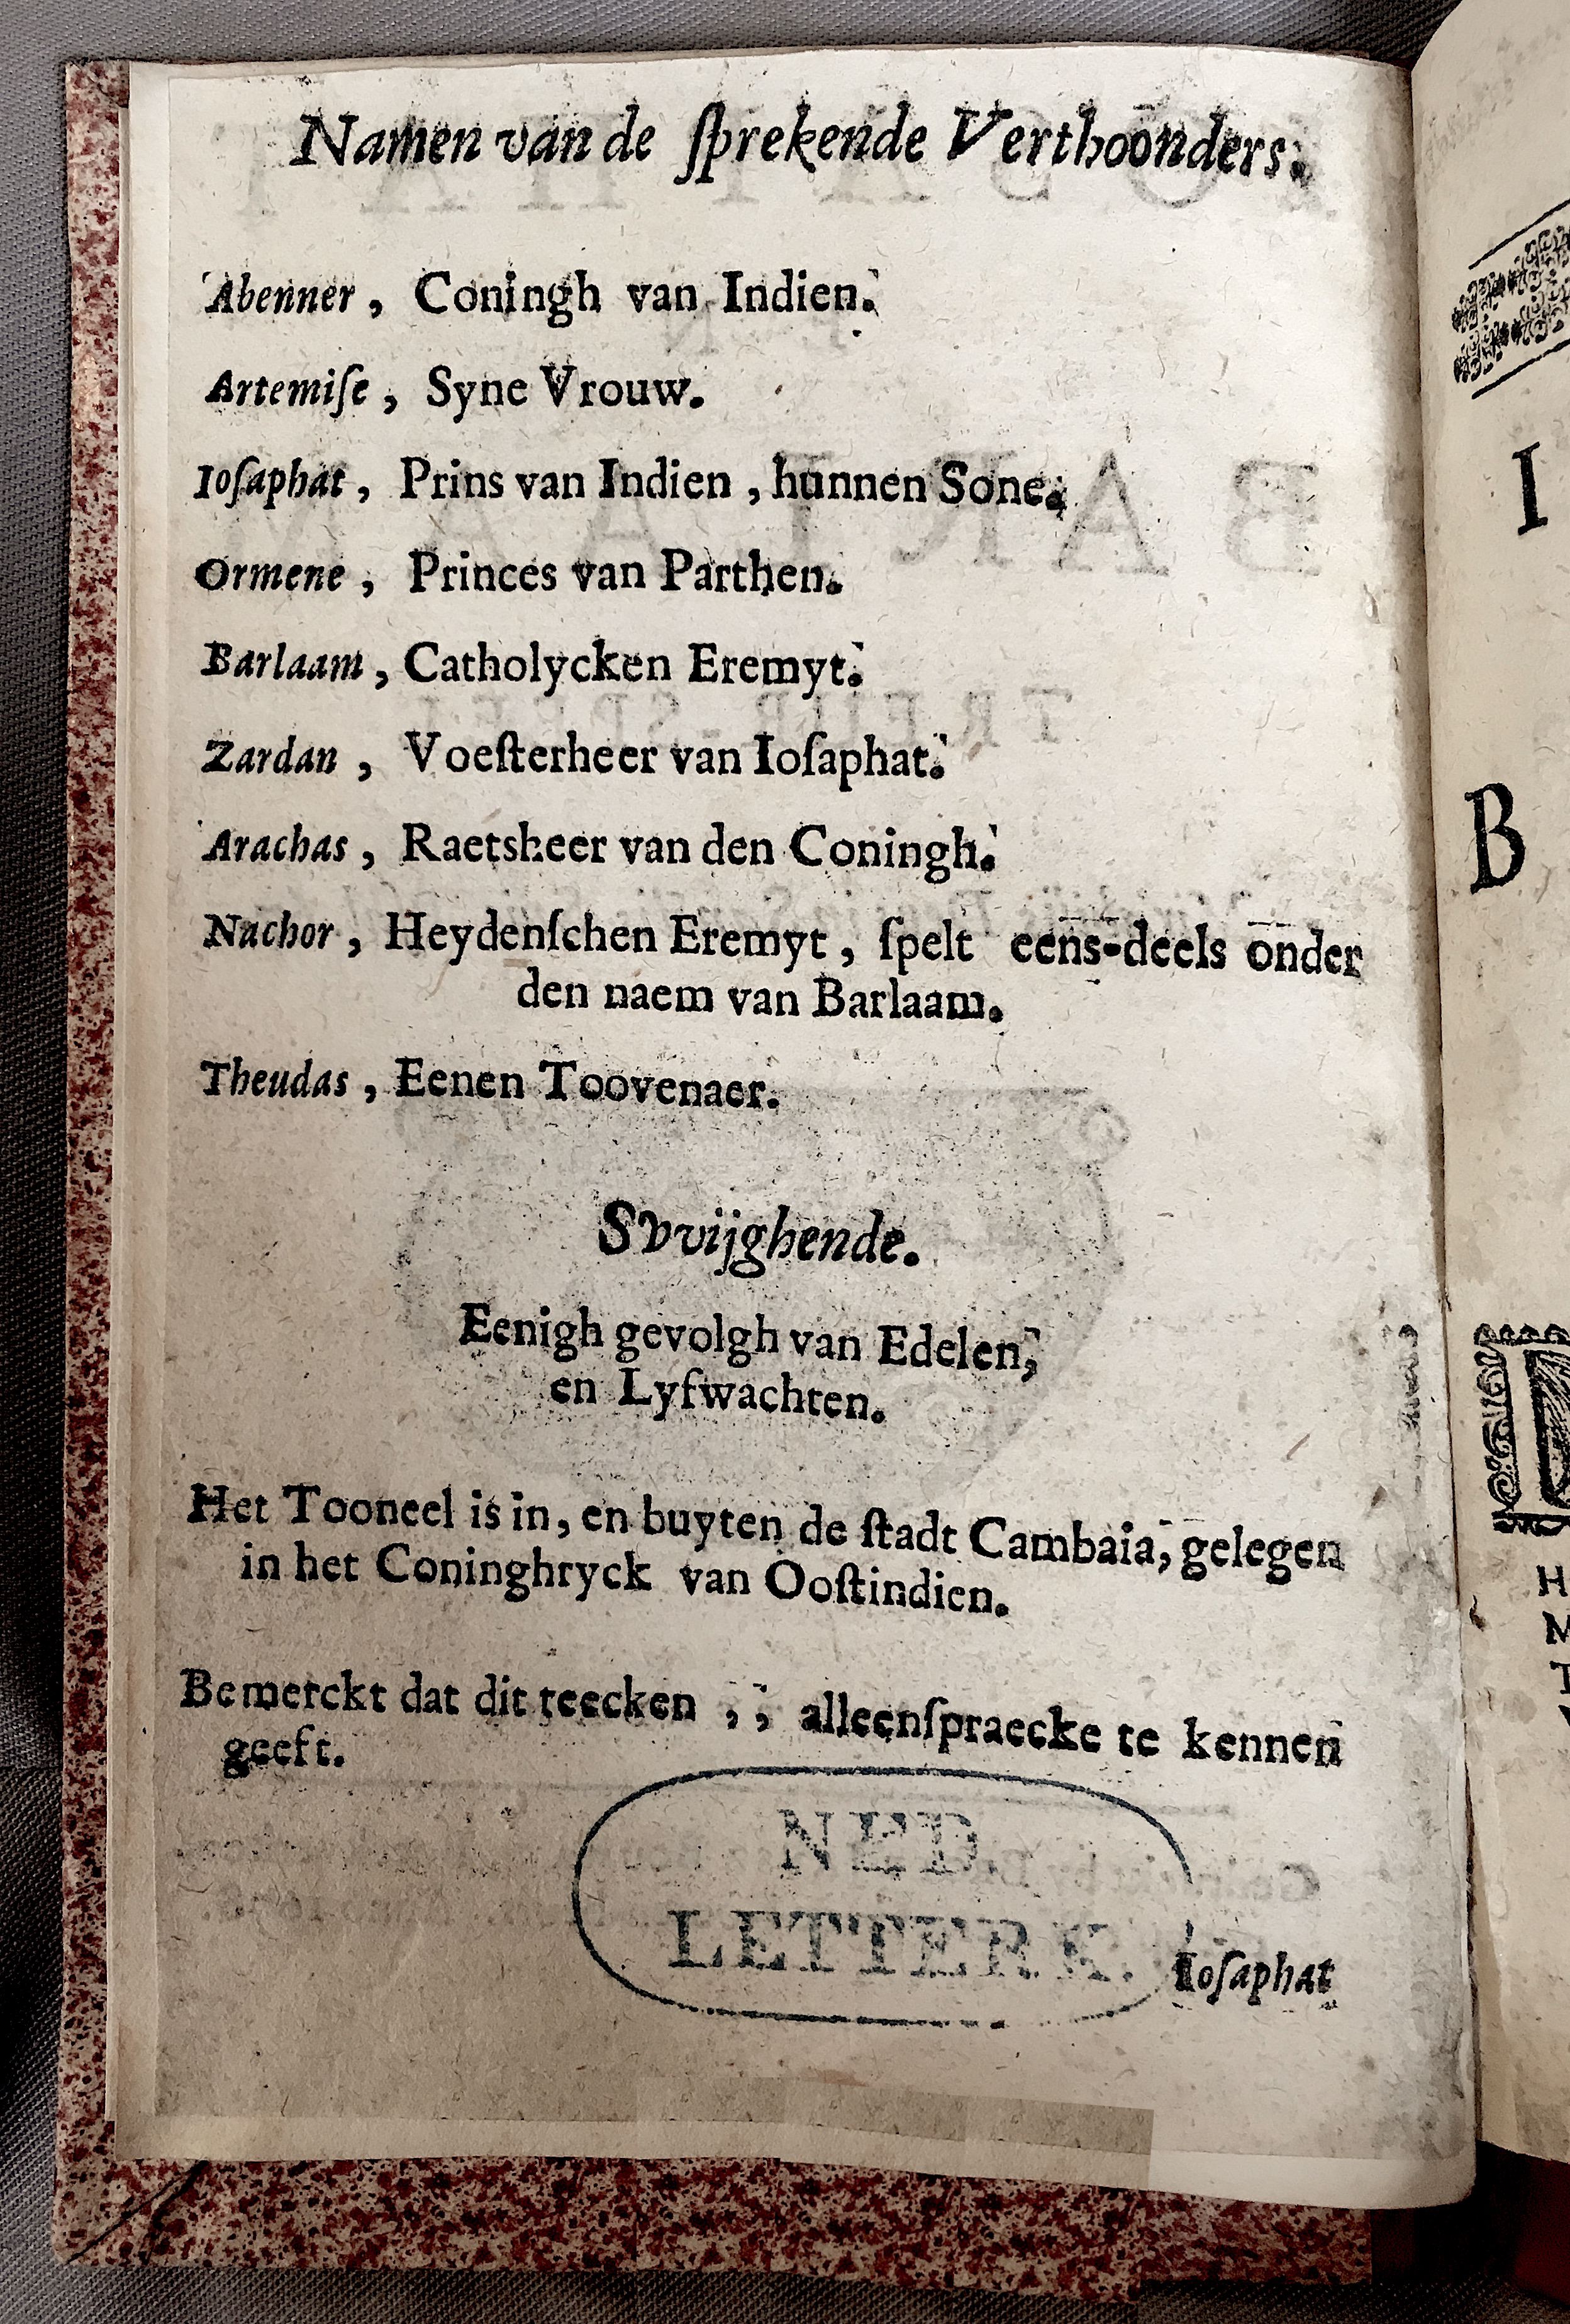 Namen van de ſprekende Verthoonders.
Abenner, Coningh van Indien.
Artemiſe, Syne Vrouw.
Ioſaphat, Prins van Indien, hunnen Sone.
Ormene, Princes van Parthen.
Barlaam, Catholycken Eremyt.
Zardan, Voeſterheer van Ioſaphat.
Arachas, Raetsheer van den Coningh.
Nachor, Heydenſchen Eremyt, ſpelt eens-deels onder
den naem van Barlaam.
Theudas, Eenen Toovenaer.
Svvijghende.
Eenigh gevolgh van Edelen,
en Lyfwachten.
Het Tooneel is in, en buyten de ſtadt Cambaia, gelegen
in het Coninghryck van Ooſtindien.
Bemerckt dat dit teecken ,, alleenſpraecke te kennen
geeft.
NED.
LETTERK.
Ioſaphat
I
B
H
M
T